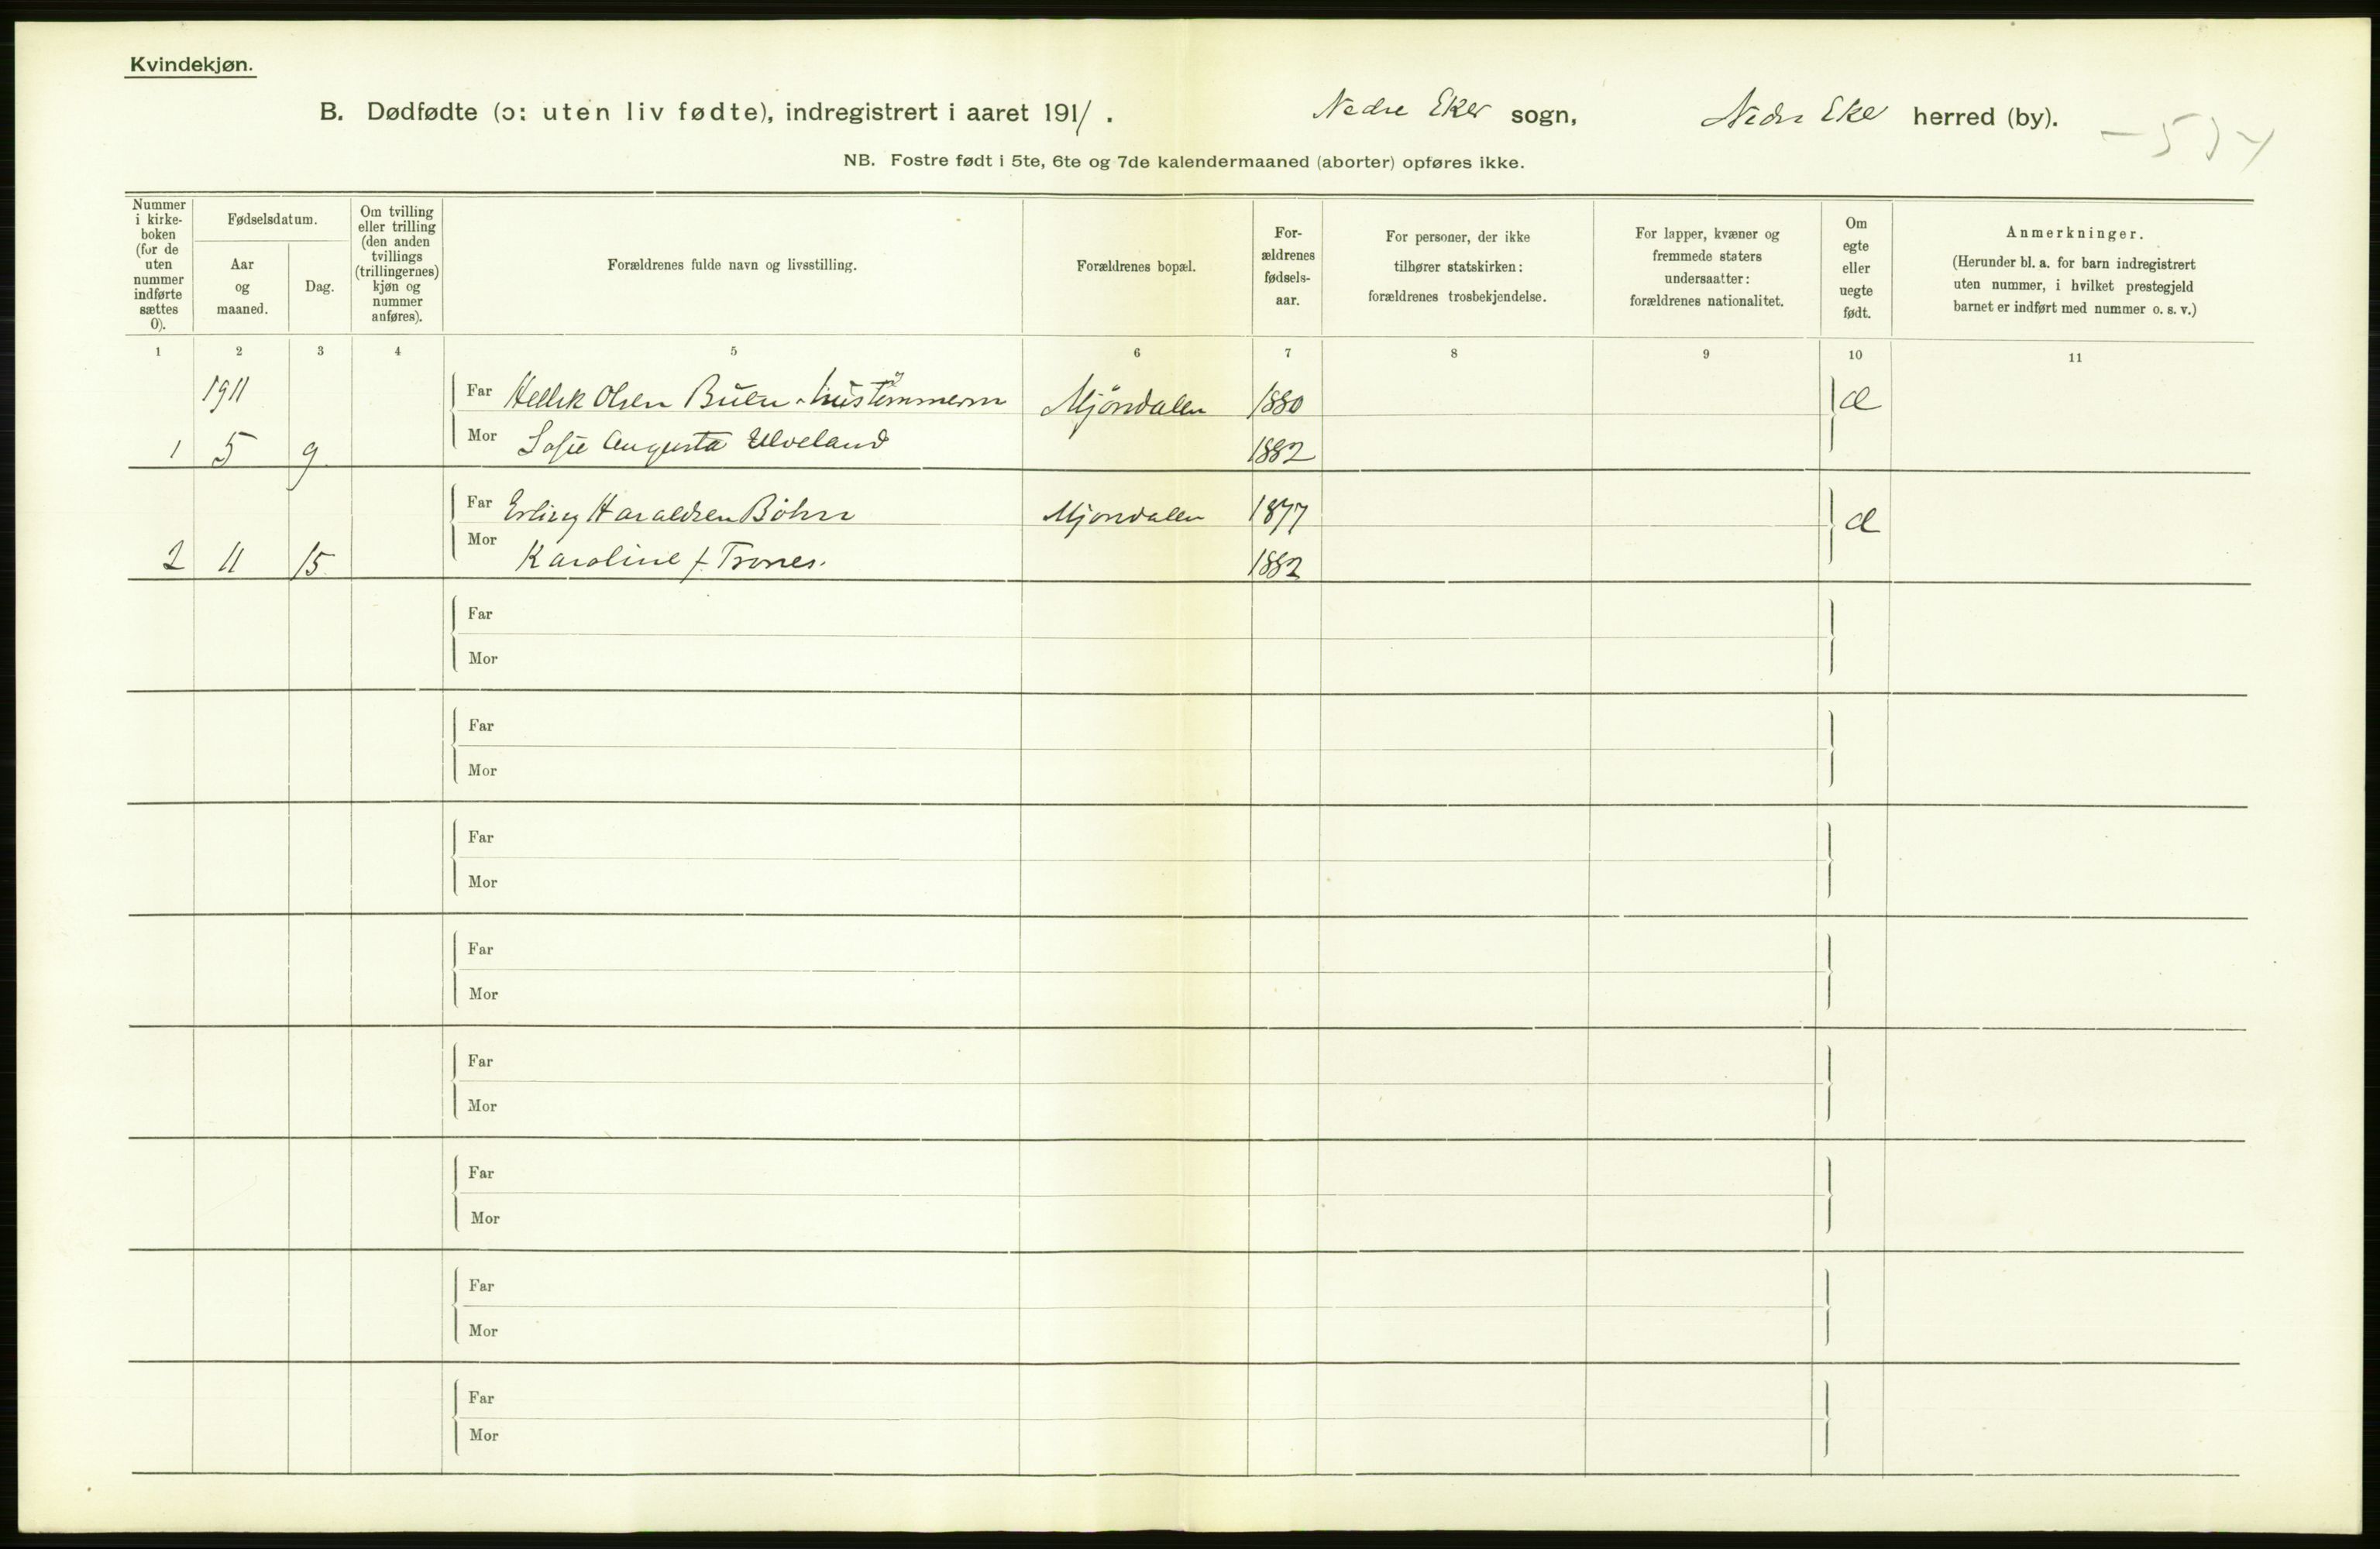 Kvindekjøn.
B. Dødfødte (ɔ: uten liv fødte), indregistrert i aaret 1911. Nedre Eker sogn, Nedre Eker herred (by).
NB. Fostre født i 5te, 6te og 7de kalendermaaned (aborter) opføres ikke.
Nummer i kirke-boken (for de uten nummer indførte sættes 0).
Fødselsdatum.
Aar og maaned.
Dag.
Om tvilling eller trilling (den anden tvillings (trillingernes) kjøn og nummer anføres).
Forældrenes fulde navn og livsstilling.
Forældrenes bopæl.
For-ældrenes fødsels-aar.
For personer, der ikke tilhører statskirken: forældrenes trosbekjendelse.
For lapper, kvæner og fremmede staters undersaatter: forældrenes nationalitet.
Om egte eller uegte født.
Anmerkninger.
(Herunder bl. a. for barn indregistrert uten nummer, i hvilket prestegjeld barnet er indført med nummer o. s. v.)
1 2 3 4 5 6 7 8 9 10 11
1911 Far Hellik Olsen Buen Mjöndalen 1880
1 5 9 Mor Sofie Augusta Ulveland 1882
Far Erling Haraldsen Böhn Mjøndalen 1877
2 11 15 Mor Karoline f. Trones. 1882
Far
Mor
Far
Mor
Far
Mor
Far
Mor
Far
Mor
Far
Mor
Far
Mor
Far
Mor